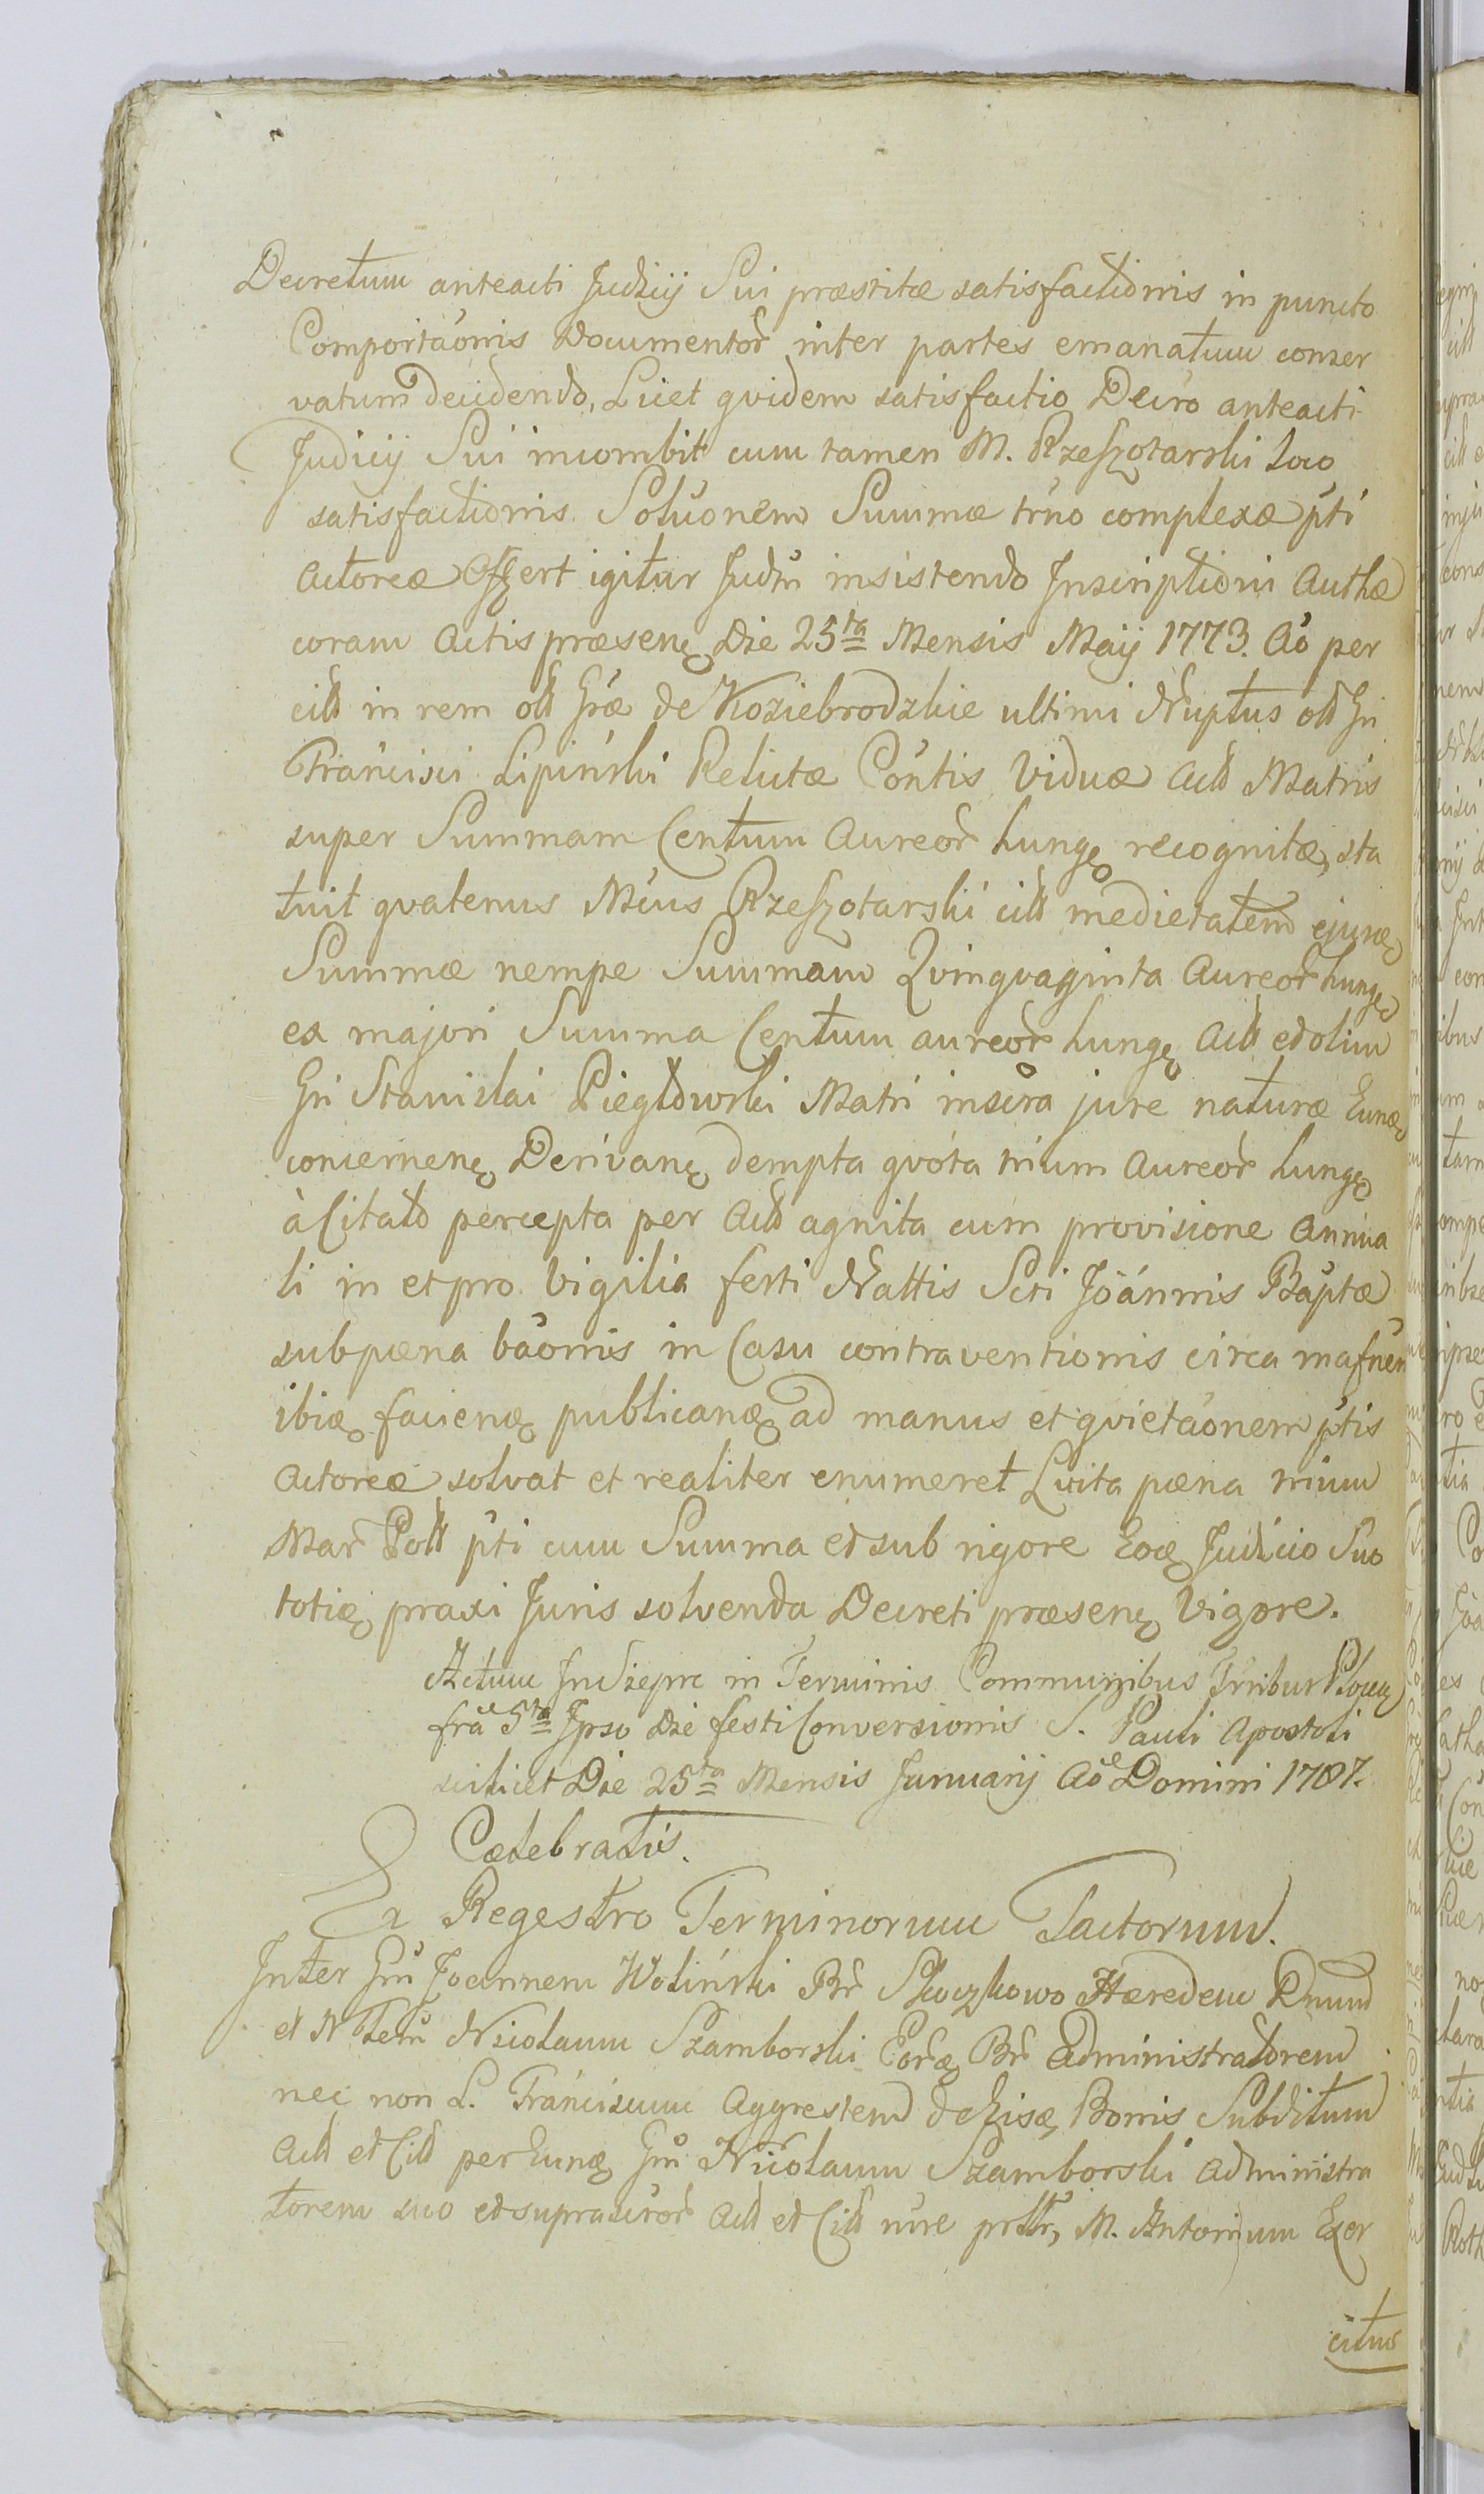 Decretum anteacti Judicij Sui præstitæ satisfactionis in puncto
Comportaonis Documentor inter partes emanatum conser
vatum decidendo, Licet qvidem satisfactio Decro anteacti
Judicij Sui incombit cum tamen M. Rzeszotarski loco
satisfactionis Soluonem Summæ trno complexæ pti
Actoreæ offert igitur Judm insistendo Inscriptioni Authæ
coram Actis præsenę Die 25ta Mensis Maij 1773. Ao per
citt in rem olt Græ de Koziebrodzkie ultimi Nuptus olt Gri
Francisci Lipinski Relictæ Contis Viduæ Actt Matris
super Summam Centum Aureor hungę recognitæ, sta
tuit qvatenus Mcus Rzeszotarski citt medietatem ejusę
Summæ nempe Summam Qvinqvaginta Aureor hungę
ex majori Summa Centum aureor hungę Actt et olim
Gri Stanislai Piegłowski Matri inscra jure naturæ Eunę
concernenę Derivanę dempta qvota trium Aureor hungę
à Citato percepta per Actt agnita cum provisione Annua
li in et pro Vigilia festi Nattis Scti Joannis Baptæ
sub pœna baonis in Casu contraventionis circa
ibię facienę publicanę ad manus et qvietaonem ptis
Actoreæ solvat et realiter enumeret Luita pœna trium
Mar Poll pti cum Summa et sub rigore Eoę Judicio Suo
totię praxi Juris solvenda Decreti præsenę Vigore.
Actum In Sieprc in Terminis Communibus Trribur Plocę
fra 5ta Ipso Die festi Conversionis S. Pauli Apostoli
scilicet Die 25ta Mensis Januarij Ao Domini 1787.
Cœlebratis.
Ex Regestro Terminorum Tactorum.
Inter Gm Joannem Wolinski Br Skoczkowo Hæredem
et Nicolaum Szamborski Eorę Br Administratorem
nec non L. Franciscum Aggrestem de hisę Bonis Subditum
Actt et Citt per Eunę Gm Nicolaum Szamborski Administra
torem suo et suprascror Actt et Citt nore M. Antonium Exer
citus